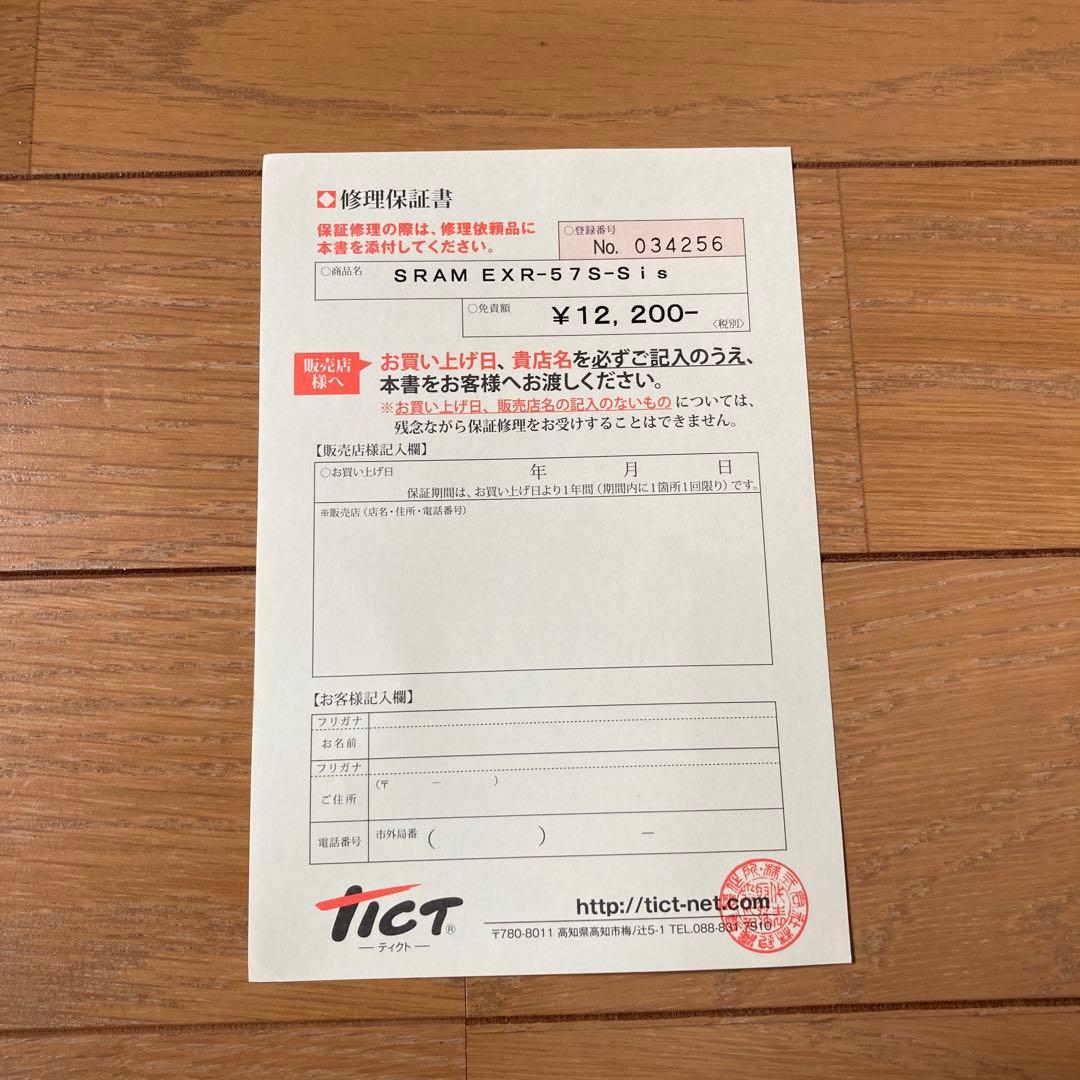 修理保証書
保証修理の際は、修理依頼品に
本書を添付してください。
○登録番号
No. 034256
○商品名 SRAM EXR-57S-Sis
○免責額 ¥12,200- 〈税別〉
販売店
様へ
お買い上げ日、貴店名を必ずご記入のうえ、
本書をお客様へお渡しください。
※お買い上げ日、販売店名の記入のないものについては、
残念ながら保証修理をお受けすることはできません。
【販売店様記入欄】
○お買い上げ日 年 月 日
保証期間は、お買い上げ日より1年間(期間内に1箇所1回限り)です。
※販売店(店名・住所・電話番号)
【お客様記入欄】
フリガナ
お名前
フリガナ
ご住所 (〒 - )
電話番号 市外局番 ( ) -
TICT®
ティクト
http://tict-net.com
〒780-8011 高知県高知市梅ノ辻5-1 TEL.088-831-7910
株式会社